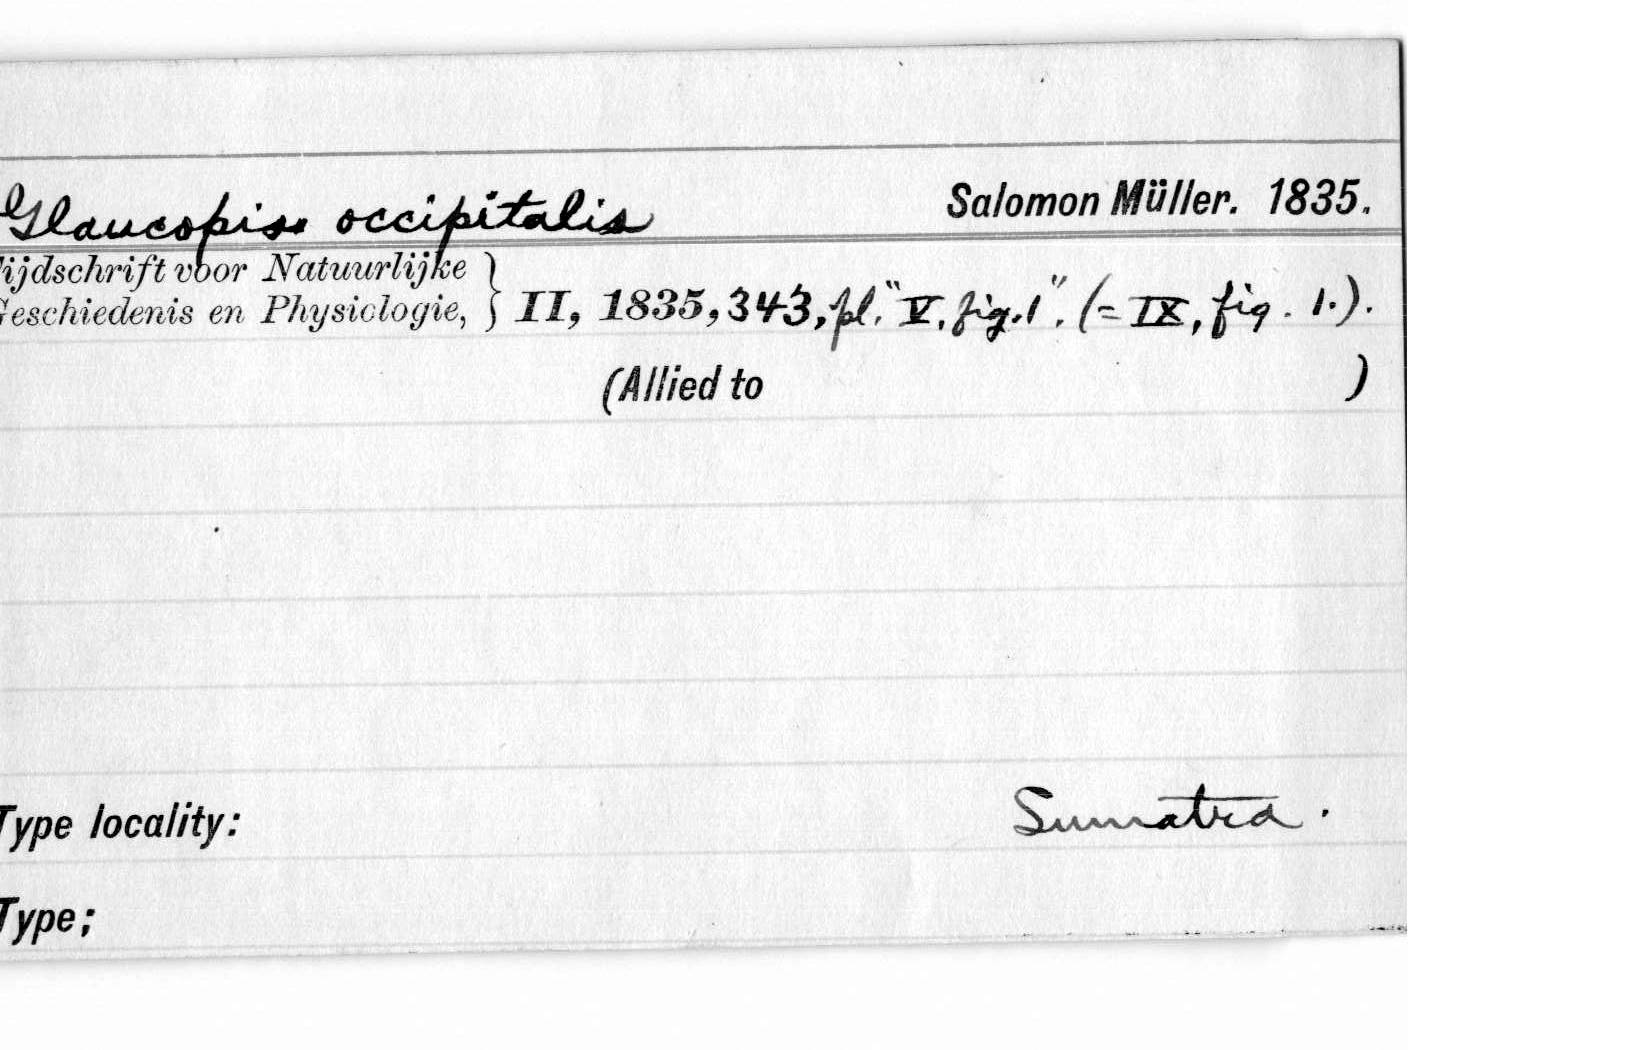 Glaucopis. occipitalis Salomon Müller. 1835.
ijdschrift voor Natuurlijke
eschiedenis en Physiologie, } II, 1835, 343, pl. "V, fig. 1". (= IX, fig. 1.).
(Allied to )
Type locality: Sumatra.
Type;